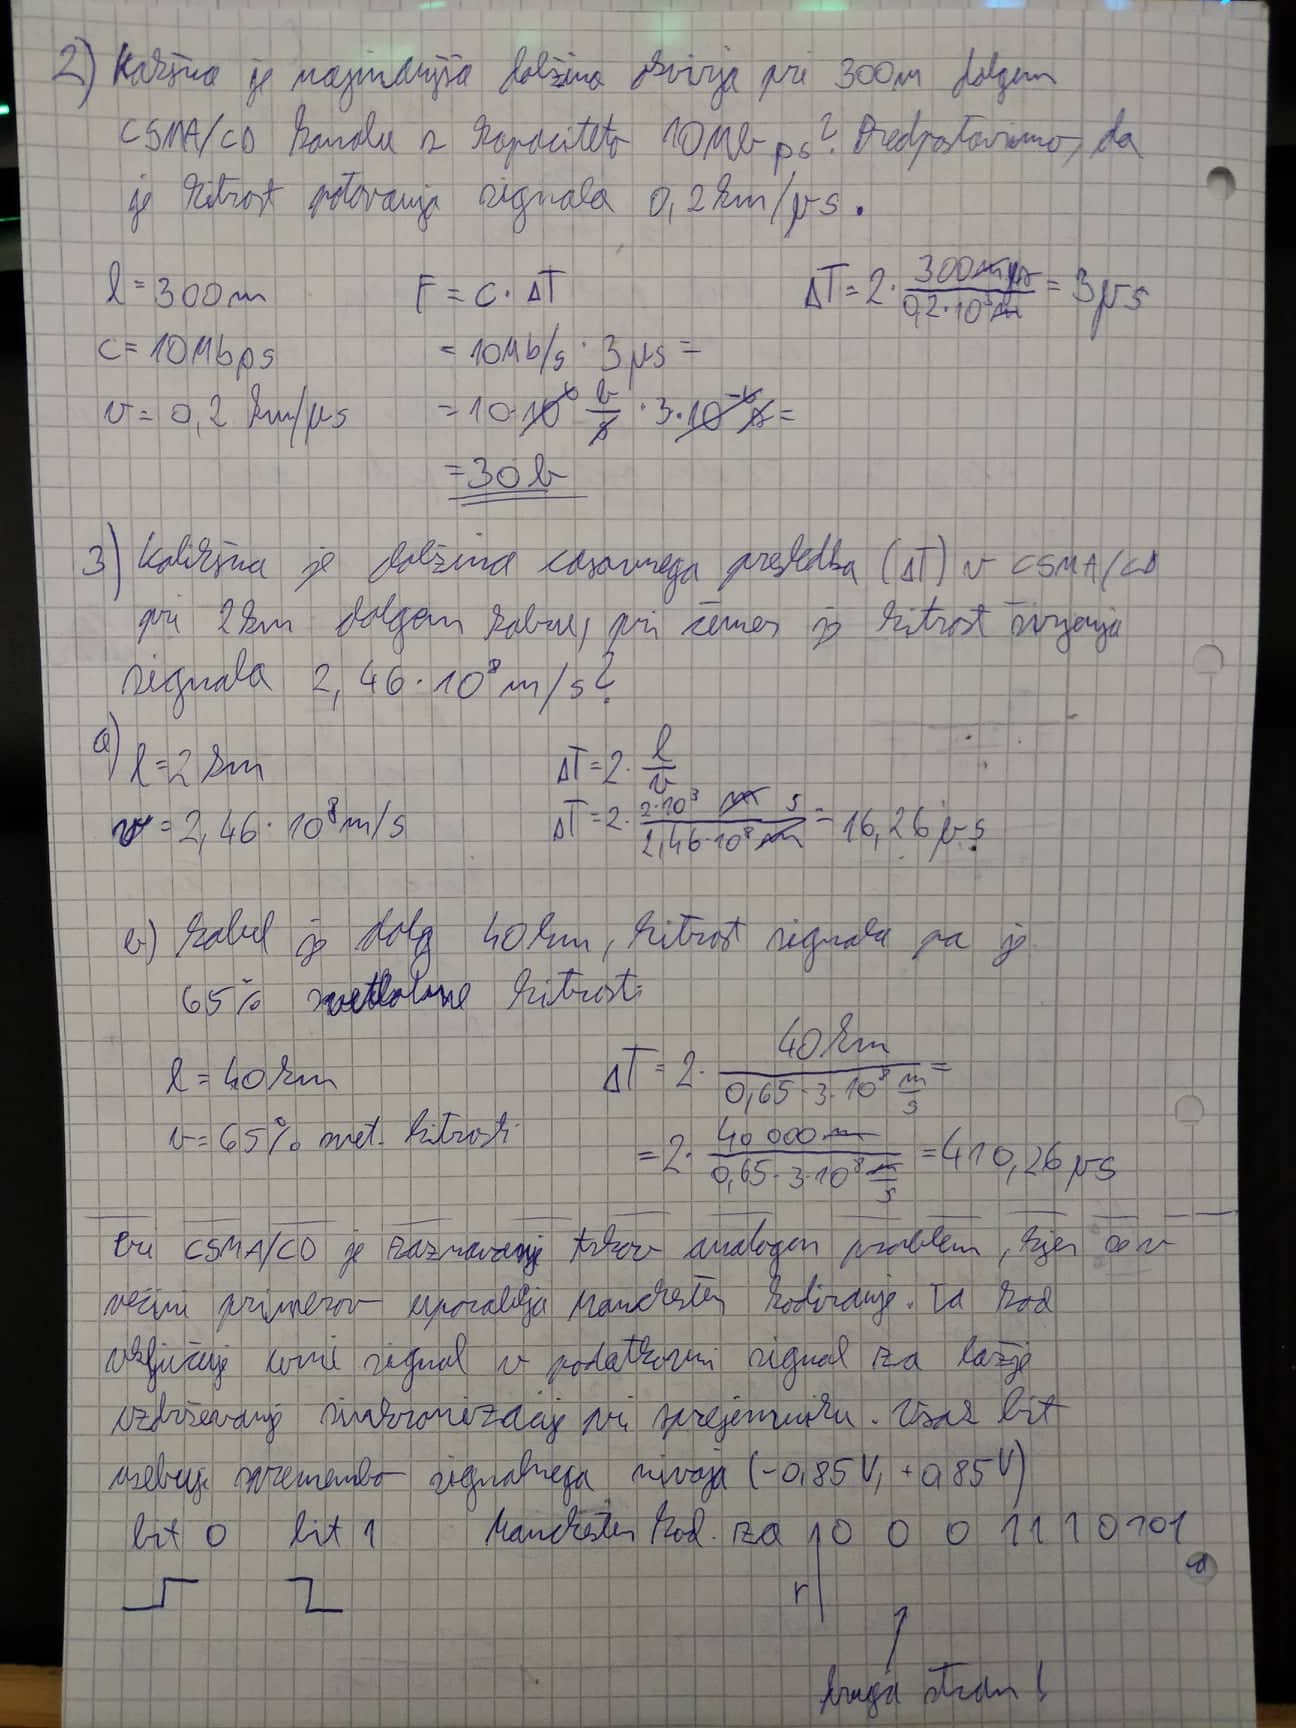 2) Kakšna je najmanjša dolžina okvirja pri 300m dolgem
CSMA/CD kanalu z kapaciteto 10Mbps? Predpostavimo, da
je hitrost potovanja signala 0,2km/μs.
l = 300m F = C · ΔT ΔT = 2 · 300m μs / 0,2·10³m = 3μs
C = 10Mbps = 10Mb/s · 3μs =
v = 0,2 km/μs = 10·10⁶ b/s · 3·10⁻⁶ s =
= 30b
3) Kolikšna je dolžina časovnega presledka (ΔT) v CSMA/CD
pri 2km dolgem kablu, pri čemer je hitrost širjenja
signala 2,46·10⁸m/s?
a) l = 2km ΔT = 2 · l/v
v = 2,46·10⁸m/s ΔT = 2 · 2·10³ m s / 2,46·10⁸ m = 16,26μs
b) kabel je dolg 40km, hitrost signala pa je
65% svetlobne hitrosti
l = 40km ΔT = 2 · 40km / 0,65·3·10⁸ m/s =
v = 65% svet. hitrosti = 2 · 40 000m / 0,65·3·10⁸ m/s = 410,26μs
Pri CSMA/CD je zaznavanje trkov analogen problem, kjer se v
večini primerov uporablja Manchester kodiranje. Ta kod
vključuje urni signal v podatkovni signal za lažje
vzdrževanje sinhronizacije pri sprejemniku. Vsak bit
vsebuje spremembo signalnega nivoja (-0,85V, +0,85V)
bit 0 bit 1 Manchester kod. za 10 0 0 1110101
r
druga stran!